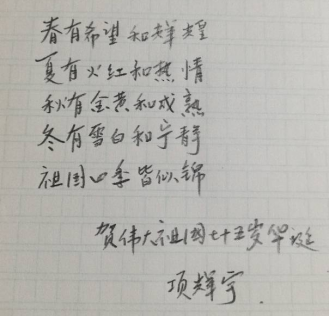 春有希望和辉煌
夏有火红和热情
秋有金黄和成熟
冬有雪白和宁静
祖国四季皆似锦
贺伟大祖国七十五岁华诞
项辉宇